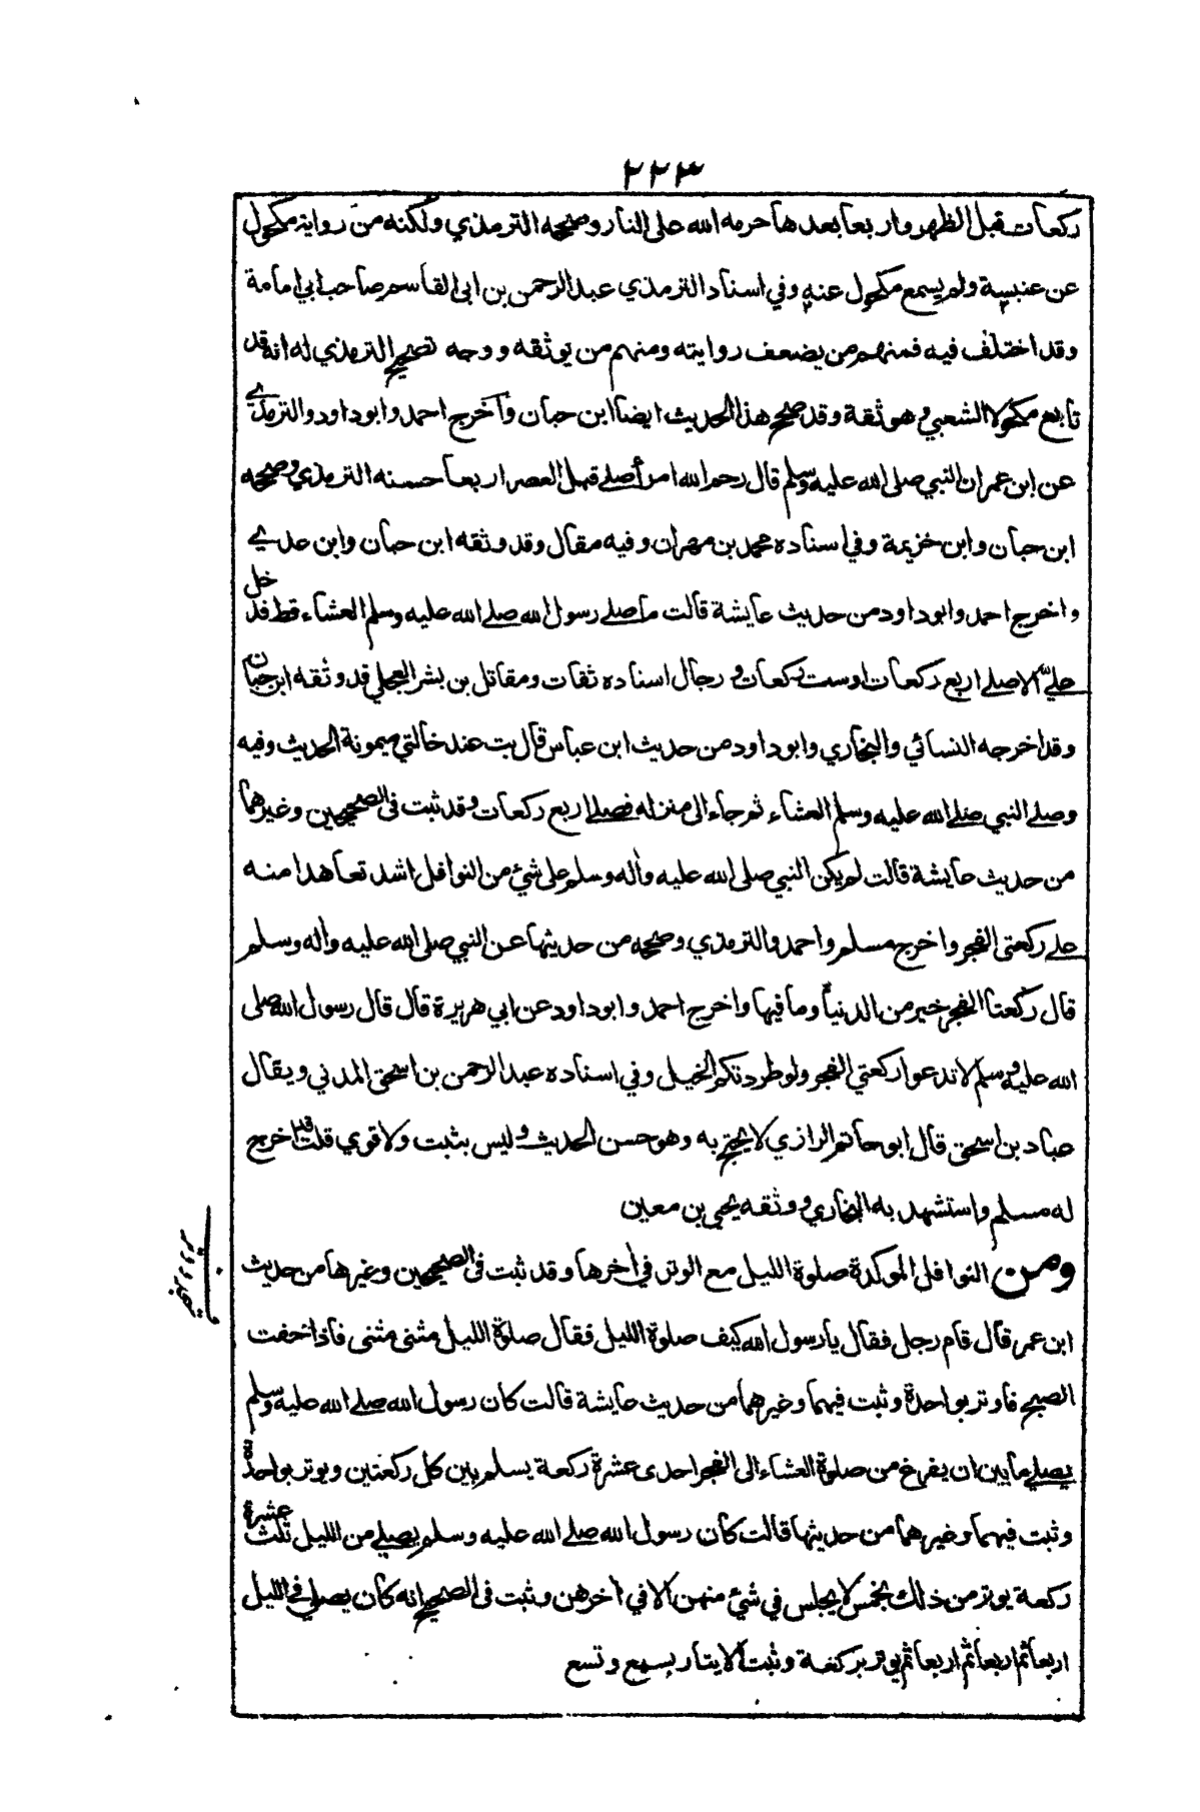 ٢٢٣
ركعات قبل الظهر واربعا بعدها حرمه الله على النار وصححه الترمذي ولكنه من رواية مكحول
عن عنبسة ولم يسمع مكحول عنه وفي اسناد الترمذي عبد الرحمن بن ابى القاسم صاحب ابي امامة
وقد اختلف فيه فمنهم من يضعف روايته ومنهم من يوثقه ووجه تصحيح الترمذي له انه قد
تابع مكحولا الشعبي وهو ثقة وقد صحح هذا الحديث ايضا ابن حبان وآخرج احمد وابوداود والترمذي
عن ابن عمر ان النبي صلى الله عليه وسلم قال رحم الله امرأ صلے قبل العصر اربعا حسنه الترمذي وصححه
ابن حبان وابن خزيمة وفي اسناده محمد بن مهران وفيه مقال وقد وثقه ابن حبان وابن عدي
واخرج احمد وابوداود من حديث عايشة قالت ما صلے رسول الله صلے الله عليه وسلم العشاء قط فدخل
علیّ الا صلے اربع ركعات اوست ركعات ورجال اسناده ثقات ومقاتل بن بشر العجلي قد وثقه ابن حبان
وقد اخرجه النسائي والبخاري وابوداود من حديث ابن عباس قال بت عند خالتي ميمونة الحديث وفيه
وصلے النبي صلے الله عليه وسلم العشاء ثم جاء الى منزله فصلے اربع ركعات وقد ثبت فى الصحيحين وغيرهما
من حديث عايشة قالت لم يكن النبي صلى الله عليه وآله وسلم على شئ من النوافل اشد تعاهدا منه
علے ركعتى الفجر واخرج مسلم واحمد والترمذي وصححه من حديثها عن النبي صلى الله عليه وآله وسلم
قال ركعتا الفجر خير من الدنيا وما فيها واخرج احمد وابوداود عن ابي هريرة قال قال رسول الله صلى
الله عليه وسلم لا تدعوا ركعتي الفجر ولو طردتكم الخيل وفي اسناده عبد الرحمن بن اسحق المدني ويقال
عباد بن اسحق قال ابو حاتم الرازي لا يحتج به وهو حسن الحديث وليس بثبت ولا قوي قلت قد اخرج
له مسلم واستشهد به البخاري ووثقه يحيى بن معين
ومن النوافل الموكدة صلوة الليل مع الوتر في اخرها وقد ثبت فى الصحيحين وغيرها من حديث
ابن عمر قال قام رجل فقال يا رسول الله كيف صلوة الليل فقال صلوة الليل مثنى مثنى فاذا خفت
الصبح فاوتر بواحدة وثبت فيهما وغيرهما من حديث عايشة قالت كان رسول الله صلے الله عليه وسلم
يصلے ما بين ان يفرغ من صلوة العشاء الى الفجر احدى عشرة ركعة يسلم بين كل ركعتين ويوتر بواحدة
وثبت فيهما وغيرهما من حديثها قالت كان رسول الله صلے الله عليه وسلم يصلے من الليل ثلث عشرة
ركعة يوتر من ذلك بخمس لا يجلس في شئ منهن الا في اخرهن وثبت فى الصحيح انه كان يصلي في الليل
اربعا ثم اربعا ثم اربعا ثم يوتر بركعة وثبت الايتار بسبع وتسع